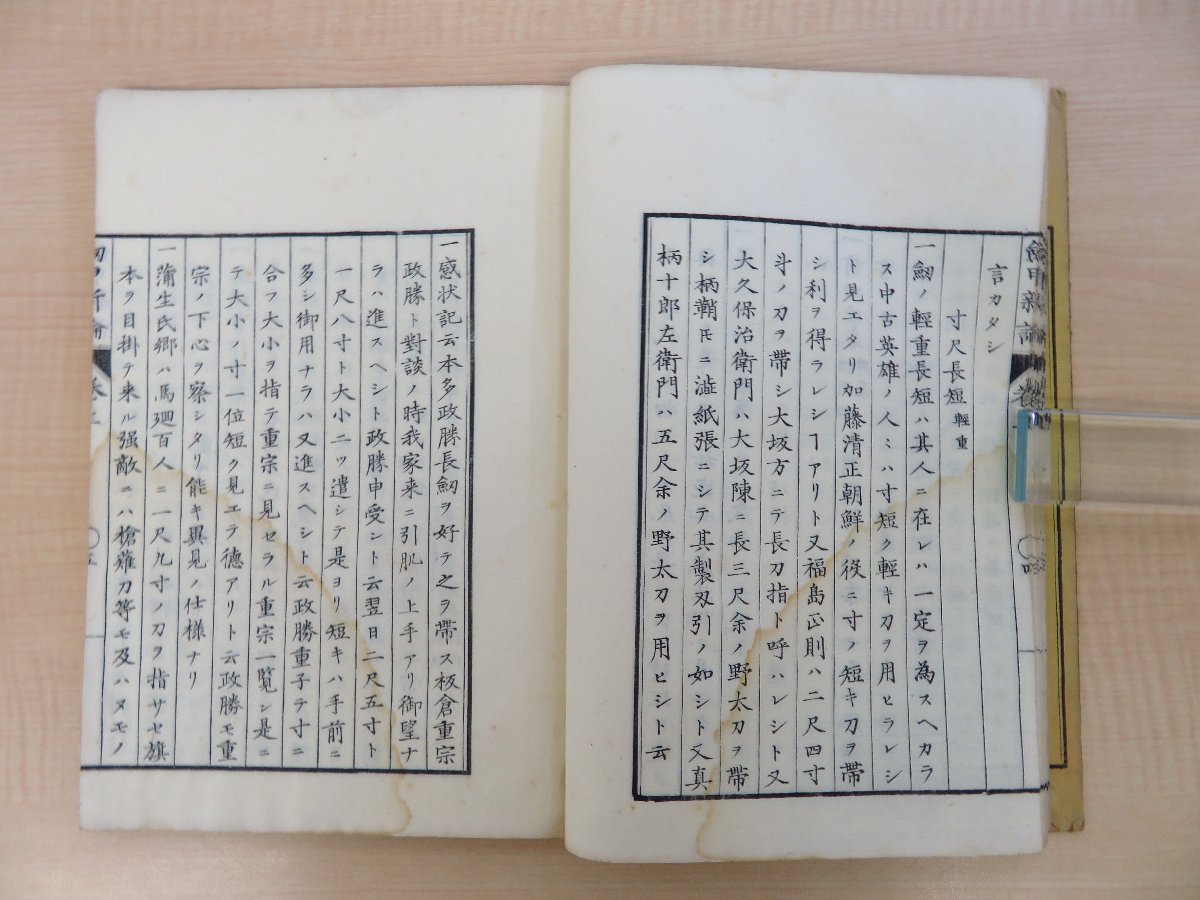 言カタシ
寸尺長短 輕重
一劔ノ輕重長短ハ其人ニ在レハ一定ヲ為スヘカラ
ス中古英雄ノ人ミハ寸短ク輕キ刀ヲ用ヒラレシ
ト見エタリ加藤清正朝鮮ノ役ニ寸ノ短キ刀ヲ帶
シ利ヲ得ラレシヿアリト又福島正則ハ二尺四寸
斗ノ刀ヲ帶シ大坂方ニテ長刀指ト呼ハレシト又
大久保治衛門ハ大坂陳ニ長三尺余ノ野太刀ヲ帶
シ柄鞘𪜈ニ澁紙張ニシテ其製刄引ノ如シト又真
柄十郎左衛門ハ五尺余ノ野太刀ヲ用ヒシト云
一感状記云本多政勝長劔ヲ好テ之ヲ帶ス板倉重宗
政勝ト對談ノ時我家来ニ引肌ノ上手アリ御望ナ
ラハ進スヘシト政勝申受ント云翌日二尺五寸ト
一尺八寸ト大小二ツ遣シテ是ヨリ短キハ手前ニ
多シ御用ナラハ又進スヘシト云政勝重子テ寸ニ
合フ大小ヲ指テ重宗ニ見セラル重宗一覧シ是ニ
テ大小ノ寸一位短ク見エラ德アリト云政勝モ重
宗ノ下心ヲ察シタリ能キ異見ノ仕様ナリ
一蒲生氏郷ハ馬廻百人ニ一尺九寸ノ刀ヲ指サセ旗
本ヲ目掛テ来ル强敵ニハ槍薙刀等モ及ハヌモノ